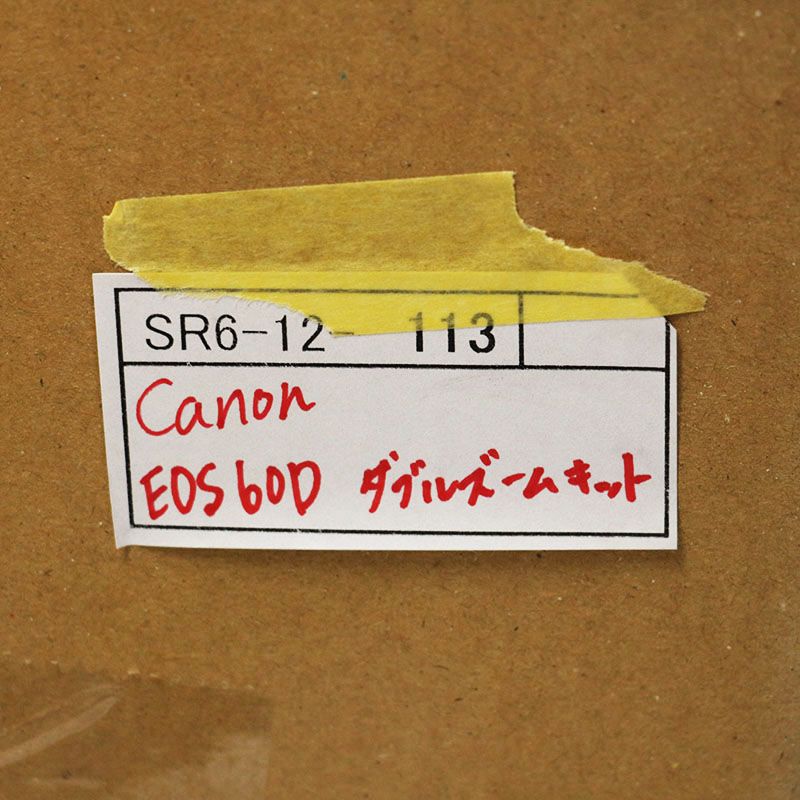 SR6-12- 113
Canon
EOS 60D ダブルズームキット